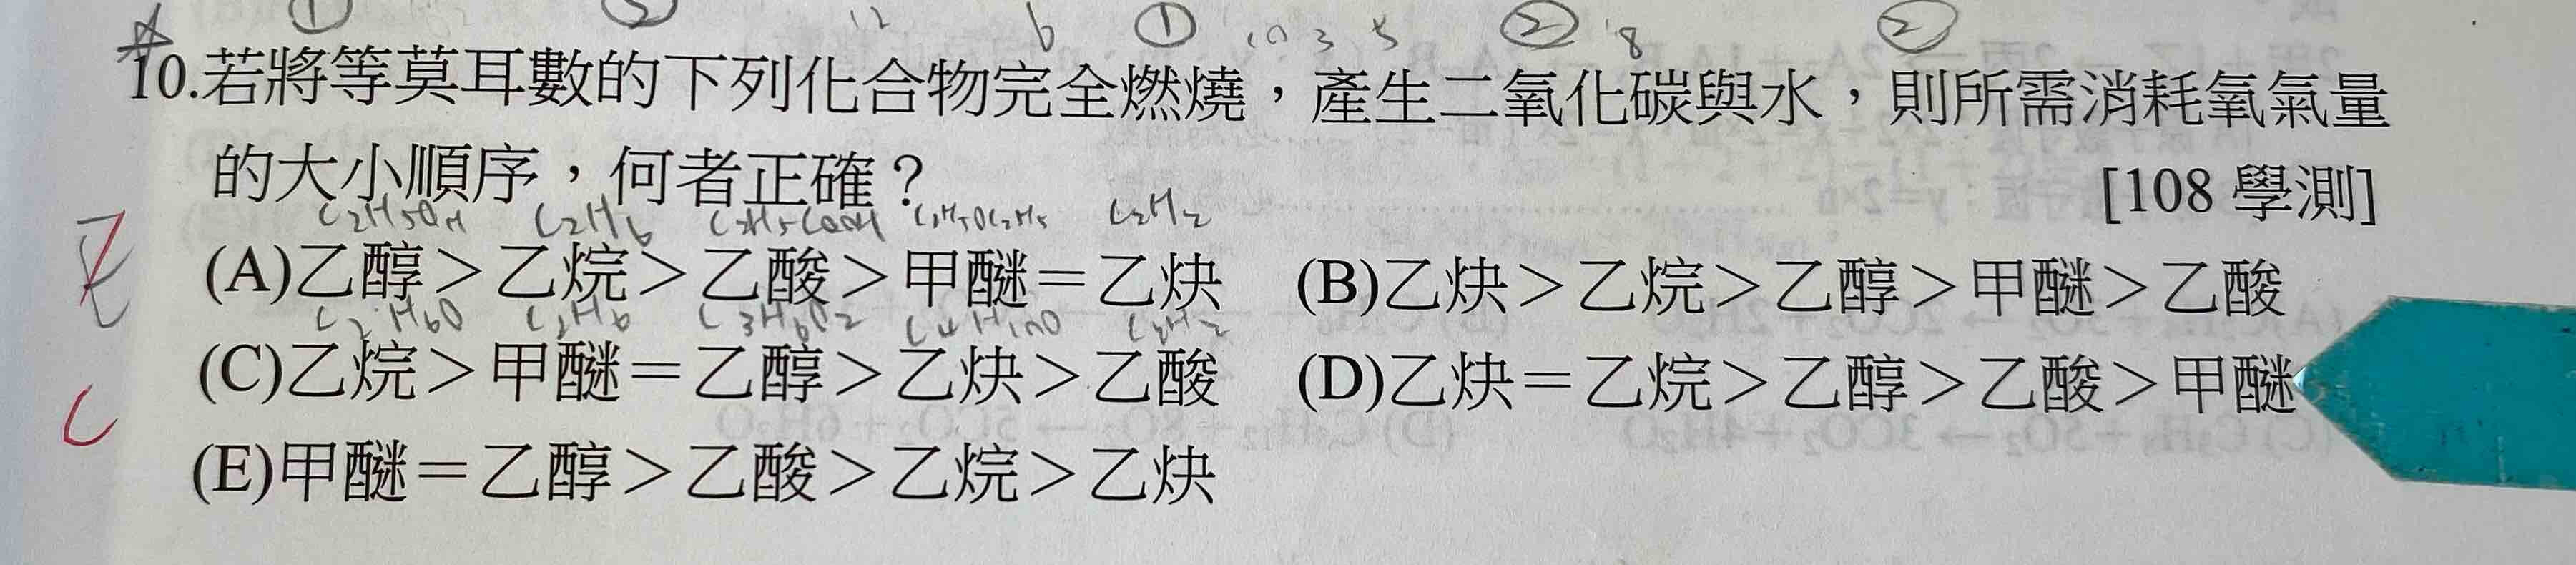 ① ② 12 6 ① 10 3 5 ② 8 ②
10.若將等莫耳數的下列化合物完全燃燒，產生二氧化碳與水，則所需消耗氧氣量
的大小順序，何者正確？ [108 學測]
C2H5OH C2H6 C2H5COOH C2H5OC2H5 C2H2
(A)乙醇＞乙烷＞乙酸＞甲醚＝乙炔 (B)乙炔＞乙烷＞乙醇＞甲醚＞乙酸
C2H6O C2H6 C3H6O2 C4H10O C2H2
(C)乙烷＞甲醚＝乙醇＞乙炔＞乙酸 (D)乙炔＝乙烷＞乙醇＞乙酸＞甲醚
C
(E)甲醚＝乙醇＞乙酸＞乙烷＞乙炔